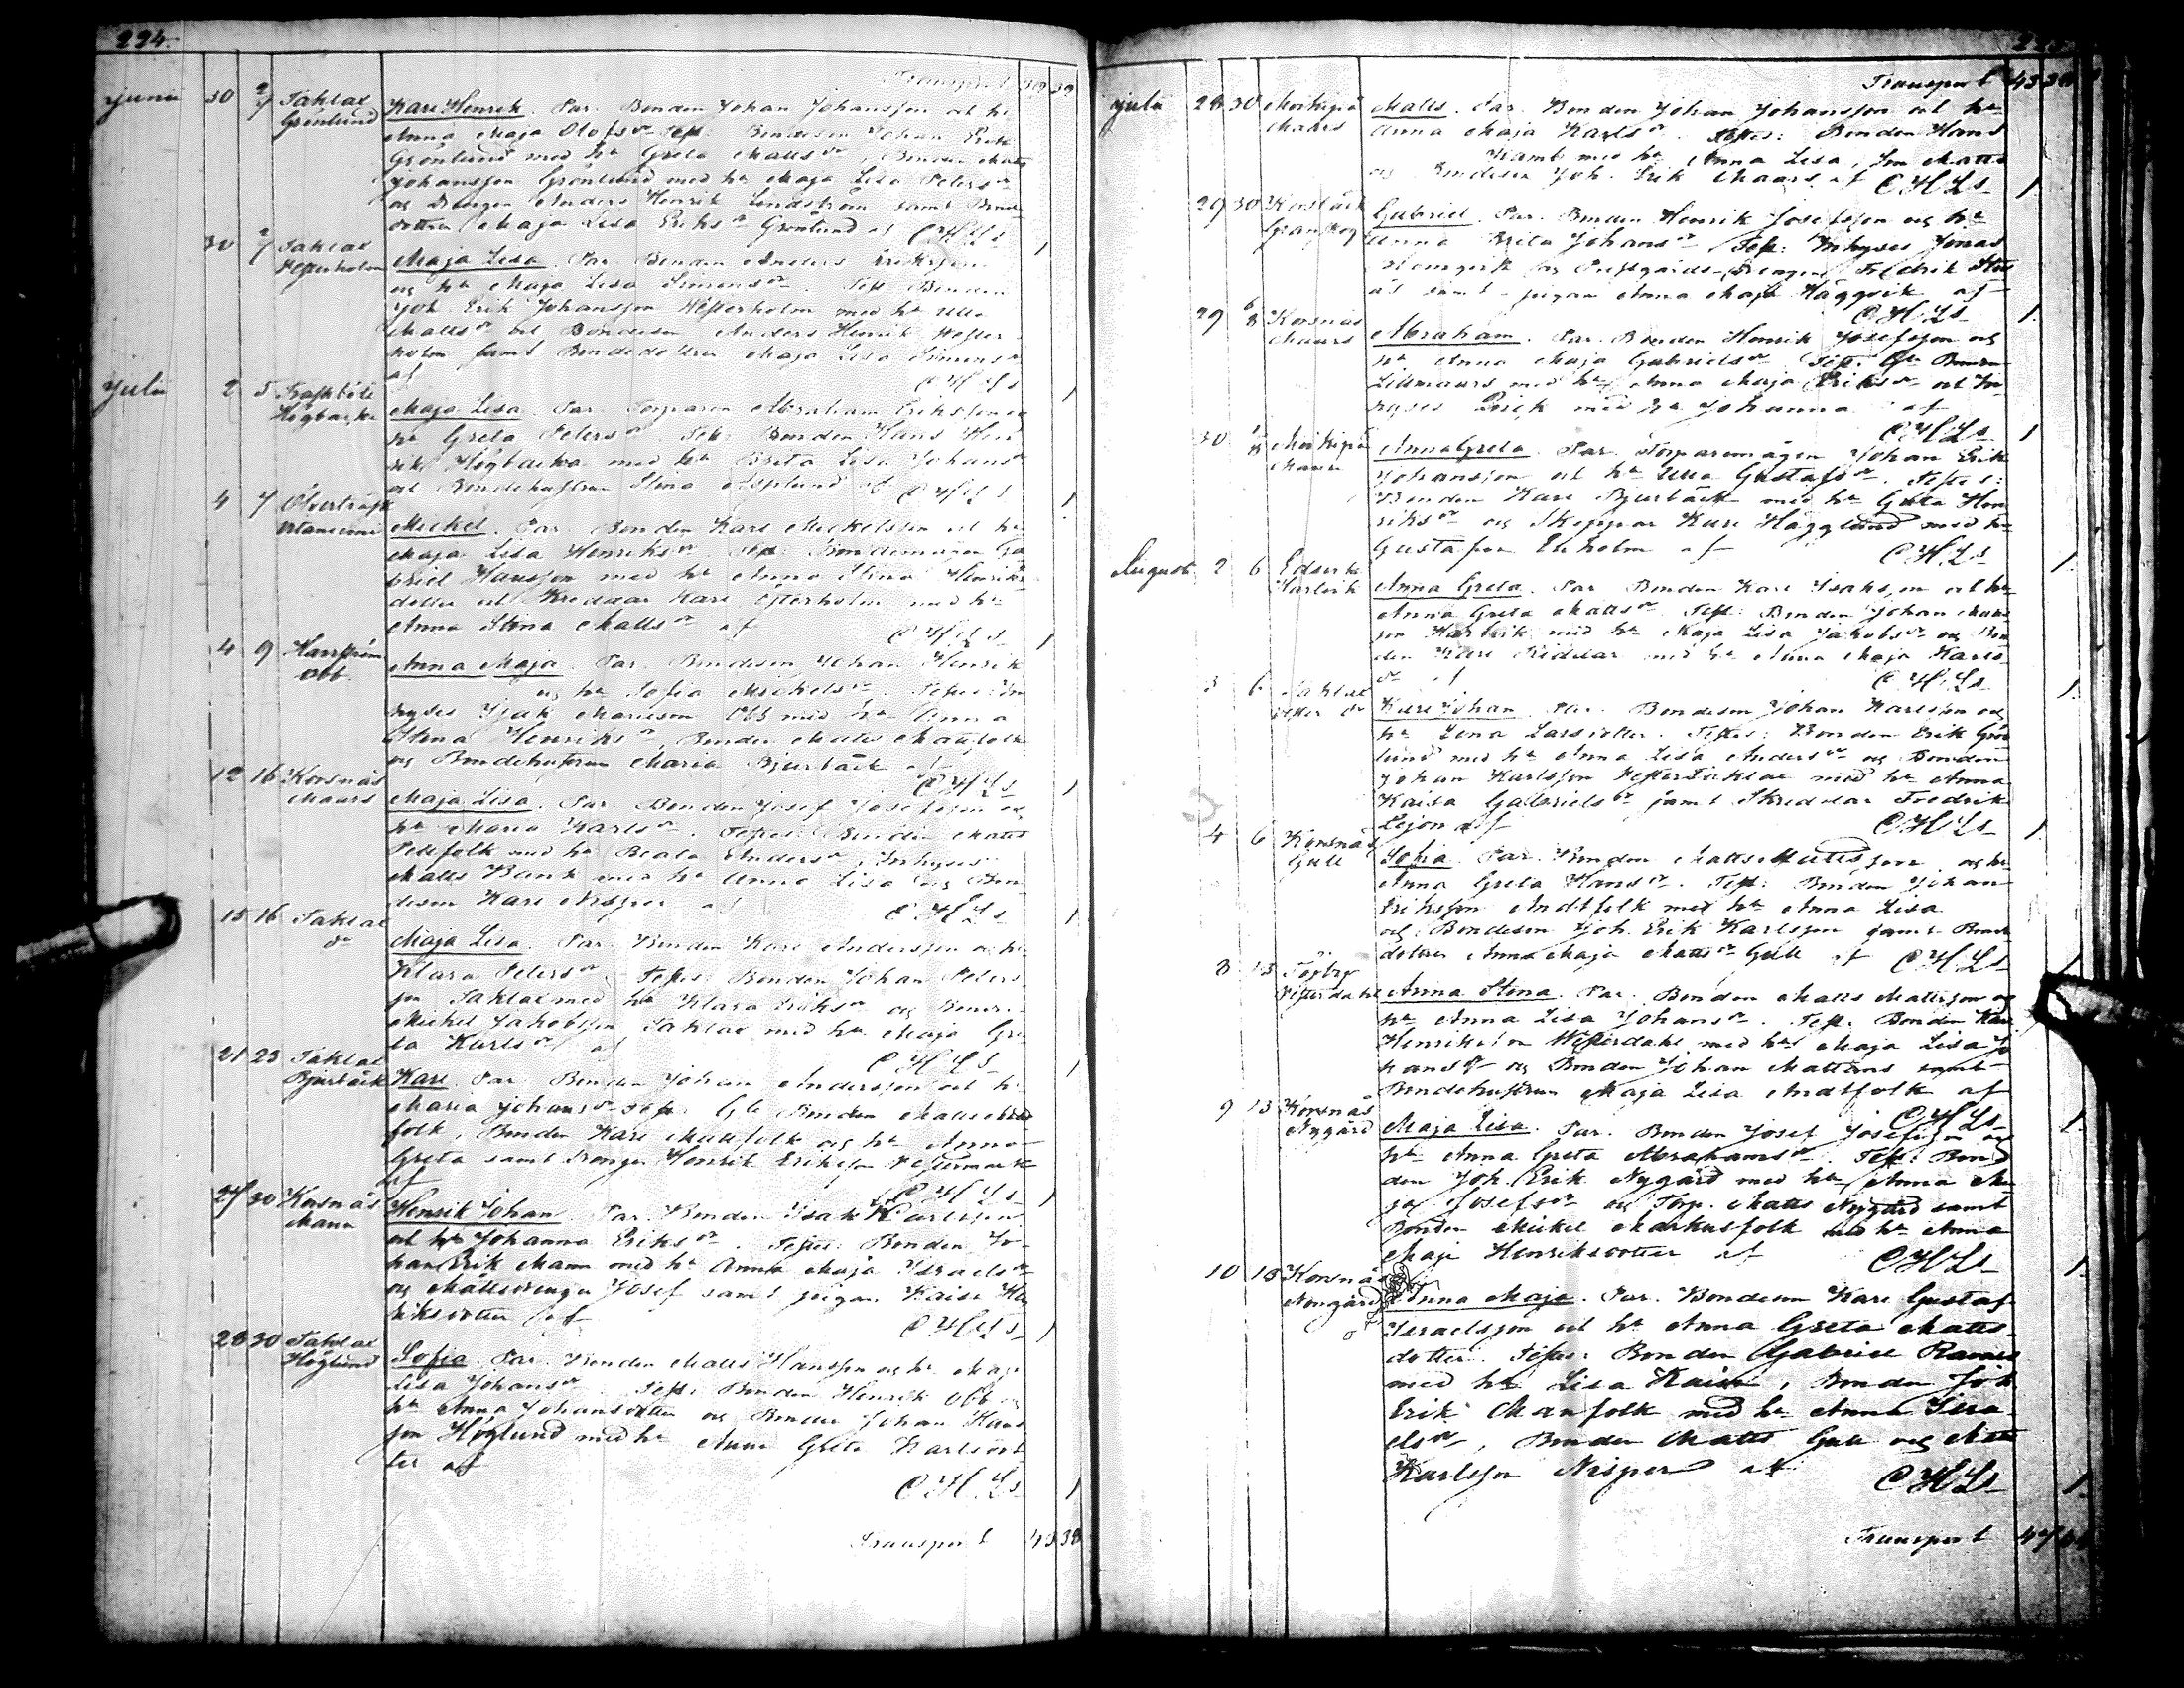 224.
Transport 39 32
Juni 30 2/7 Taklax Grönlund
Karl Henrik. Par. Bonden Johan Johansson och h:
Anna Maja Olofs dr Test: Bondeson Johan Erik
Grönlund med h: Greta Matts dr, Bonden Matts
Johansson Grönlund med h: Maja Lisa Peters dr
og Drengen Anders Henrik Lindström samt Bonde
dottren Maja Lisa Eriks dr Grönlund af CHLs
30 2/7 Taklax Westerholm
Maja Lisa. Par. Bonden Anders Eriksson
og h: Maja Lisa Simons dr. Test Bonden
Joh. Erik Johansson Westerholm med h: Ulla
Matts dr och Bondeson Anders Henrik Wester
holm samt Bondedottren Maja Lisa Simons dr
af CHLs 1
Juli 2 5 Träskböle Högbacka
Maja Lisa. Par. Torparen Abraham Eriksson og
h: Greta Peters dr. Test: Bonden Hans Hen
rik Högbacka med h: Brita Lisa Johans dr
och Bondehustrun Stina Asplund af CHLs 1
4 7 Öfverträsk
Mickel. Par. Bonden Karl Mickelsson och h:
Maja Lisa Henriks dr. Test: Bondemågen Ga
briel Hansson med h: Anna Stina Henriks
dotter och Skreddar Karl Österholm med h:
Anna Stina Matts dr af CHLs 1
4 9 Harrström Obb
Anna Maja. Par. Bondeson Johan Henrik
og h: Sofia Mickels dr. Testes: In
hyses Isak Obb med h: Anna
Stina Henriks dr, Bonden Matts Mattfolk
og Bondehustrun Maria Bjurbäck af
CHLs 1
12 16 Korsnäs Maars
Maja Lisa. Par. Bonden Josef Josefsson og
h: Maria Karls dr. Testes: Bonden Matts
Pellfolk med h: Beata Anders dr, Inhyses
Matts Bank med h: Anna Lisa og Bon
deson Karl Nisper af CHLs 1
15 16 Taklax do
Maja Lisa. Par. Bonden Karl Andersson och h:
Klara Peters dr. Testes: Bonden Johan Peters
son Taklax med h: Klara Eriks dr og Bond.
Mickel Jakobsson Taklax med h: Maja Gre
ta Karls dr af CHLs 1
21 23 Taklax Bjurbäck
Karl. Par. Bonden Johan Andersson och h:
Maria Johans dr Test: Gle Bonden Matts Matt
folk, Bonden Karl Mattfolk og h: Anna
Greta samt Drengen Henrik Eriksson Westermark
af CHLs 1
27 30 Korsnäs Mann
Henrik Johan. Par. Bonden Isak Karlsson
och h: Johanna Eriks dr. Testes: Bonden Jo
han Erik Mann med h: Anna Maja Israels dr
og Måttsdrengen Josef samt pigan Kaisa Hen
riksdotter af CHLs 1
28 30 Taklax Höglund
Sofia. Par. Bonden Matts Hansson og h: Maja
Lisa Johans dr. Test: Bonden Henrik Obb og
h: Anna Johansdotter og Bonden Johan Hans
son Höglund med h: Anna Greta Karlsdot
ter af
CHLs 1
Transport 43 38
Transport 43 38
Juli 28 30 Maars
Matts. Par. Bonden Johan Johansson och h:
Anna Maja Karls dr. Testes: Bonden Hans
Kamb med h: Anna Lisa, Matts
og Bondeson Joh. Erik Maars af CHLs 1
29 30 Korsbäck Granskog
Gabriel. Par. Bonden Henrik Josefsson og h:
Anna Brita Johans dr Test: Inhyses Jonas
og Prestgårds-Drengen Fredrik
samt pigan Anna Maja Häggvik af
CHLs 1
29 6/8 Korsnäs Maars
Abraham. Par. Bonden Henrik Josefsson og
h: Anna Maja Gabriels dr Test: Gle Bonden
Lillmaars med h: Anna Maja Eriks dr och In
hyses Erik med h: Johanna af
CHLs 1
30 1/8 Maars
Anna Greta. Par. Torparemågen Johan Erik
Johansson och h: Ulla Gustafs dr. Testes:
Bonden Karl Bjurbäck med h: Greta Hen
riks dr og Skeppar Karl Hägglund med h:
Gustafva Ekholm af CHLs 1
Augusti 2 6 Edsvik Harlvik
Anna Greta. Par. Bonden Karl Isaksson och h:
Anna Greta Matts dr. Test: Bonden Johan Matts
son Harlvik med h: Maja Lisa Jakobs dr og Bon
den Karl Riddar med h: Anna Maja Karls
dr af CHLs 1
3 6 Taklax
Karl Johan. Par. Bondeson Johan Karlsson och
h: Lena Larsdotter. Testes: Bonden Erik Grön
lund med h: Anna Lisa Anders dr og Bonden
Johan Karlsson Westertaklax med h: Anna
Kaisa Gabriels dr samt Skreddar Fredrik
Lejon af CHLs 1
4 6 Korsnäs Gull
Sofia. Par. Bonden Matts Mattsson og h:
Anna Greta Hans dr. Test: Bonden Johan
Eriksson Andtfolk med h: Anna Lisa
og Bondeson Joh. Erik Karlsson samt Bonde
dotter Anna Maja Matts dr Gull af CHLs 1
8 13 Töjby Westerdahl
Anna Stina. Par. Bonden Matts Mattsson og
h: Anna Lisa Johans dr. Test: Bonden Karl
Henriksson Westerdahl med h: Maja Lisa Jo
hans dr og Bonden Johan Mattans samt
Bondehustrun Maja Lisa Andtfolk af
CHLs 1
9 13 Korsnäs Nygård
Maja Lisa. Par. Bonden Josef Josefsson og
h: Anna Greta Abrahams dr. Test: Bon
den Joh. Erik Nygård med h: Anna Ma
ja Josefs dr og Torp. Matts Nygård samt
Bonden Mickel Markusfolk med h: Anna
Maja Henriksdotter af CHLs 1
10 13 Korsnäs Nongård
Anna Maja. Par. Bondeson Karl Gustaf
Israelsson och h: Anna Greta Matts-
dotter. Testes: Bonden Gabriel Ramus
med h: Lisa Kaisa, Bonden Joh
Erik Manfolk med h: Anna Isra-
els dr, Bonden Matts Gull og Matts
Karlsson Nisper af CHLs 1
Transport 47